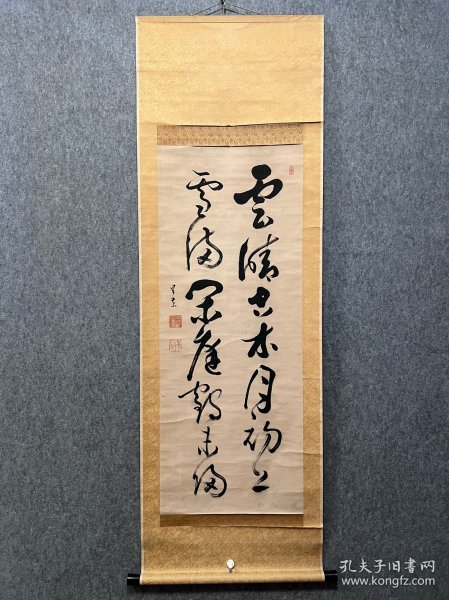 雲晴古木月初上
雪満閑庭鶴未歸
孔夫子旧书网
www.kongfz.com